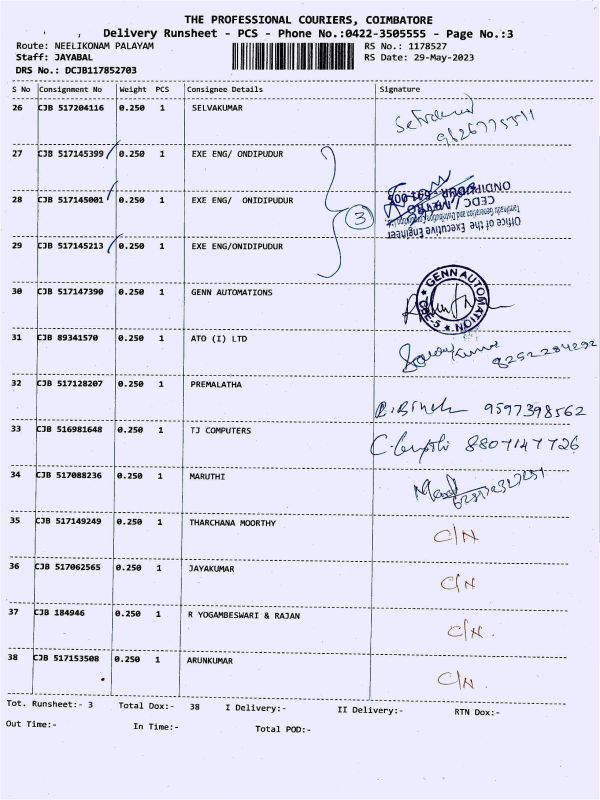 THE PROFESSIONAL COURIERS, COIMBATORE
Delivery Runsheet - PCS - Phone No.:0422-3505555 - Page No.:3
Route: NEELIKONAM PALAYAM
RS No.: 1178527
Staff: JAYABAL
RS Date: 29-May-2023
DRS No.: DCJB117852703
S No Consignment No Weight PCS Consignee Details Signature
26 CJB 517204116 0.250 1 SELVAKUMAR
27 CJB 517145399 0.250 1 EXE ENG/ ONDIPUDUR
28 CJB 517145001 0.250 1 EXE ENG/ ONIDIPUDUR
3
Office of the Executive Engineer
Tamilnadu Generation and Distribution
CEDC / METRO
ONDIPUDUR
29 CJB 517145213 0.250 1 EXE ENG/ONIDIPUDUR
30 CJB 517147390 0.250 1 GENN AUTOMATIONS
GENN AUTOMATION
CBE-5
31 CJB 89341570 0.250 1 ATO (I) LTD
32 CJB 517128207 0.250 1 PREMALATHA
9597398562
33 CJB 516981648 0.250 1 TJ COMPUTERS
8807147726
34 CJB 517088236 0.250 1 MARUTHI
35 CJB 517149249 0.250 1 THARCHANA MOORTHY C/N
36 CJB 517062565 0.250 1 JAYAKUMAR C/N
37 CJB 184946 0.250 1 R YOGAMBESWARI & RAJAN C/N.
38 CJB 517153508 0.250 1 ARUNKUMAR C/N.
Tot. Runsheet:- 3 Total Dox:- 38 I Delivery:- II Delivery:- RTN Dox:-
Out Time:- In Time:- Total POD:-